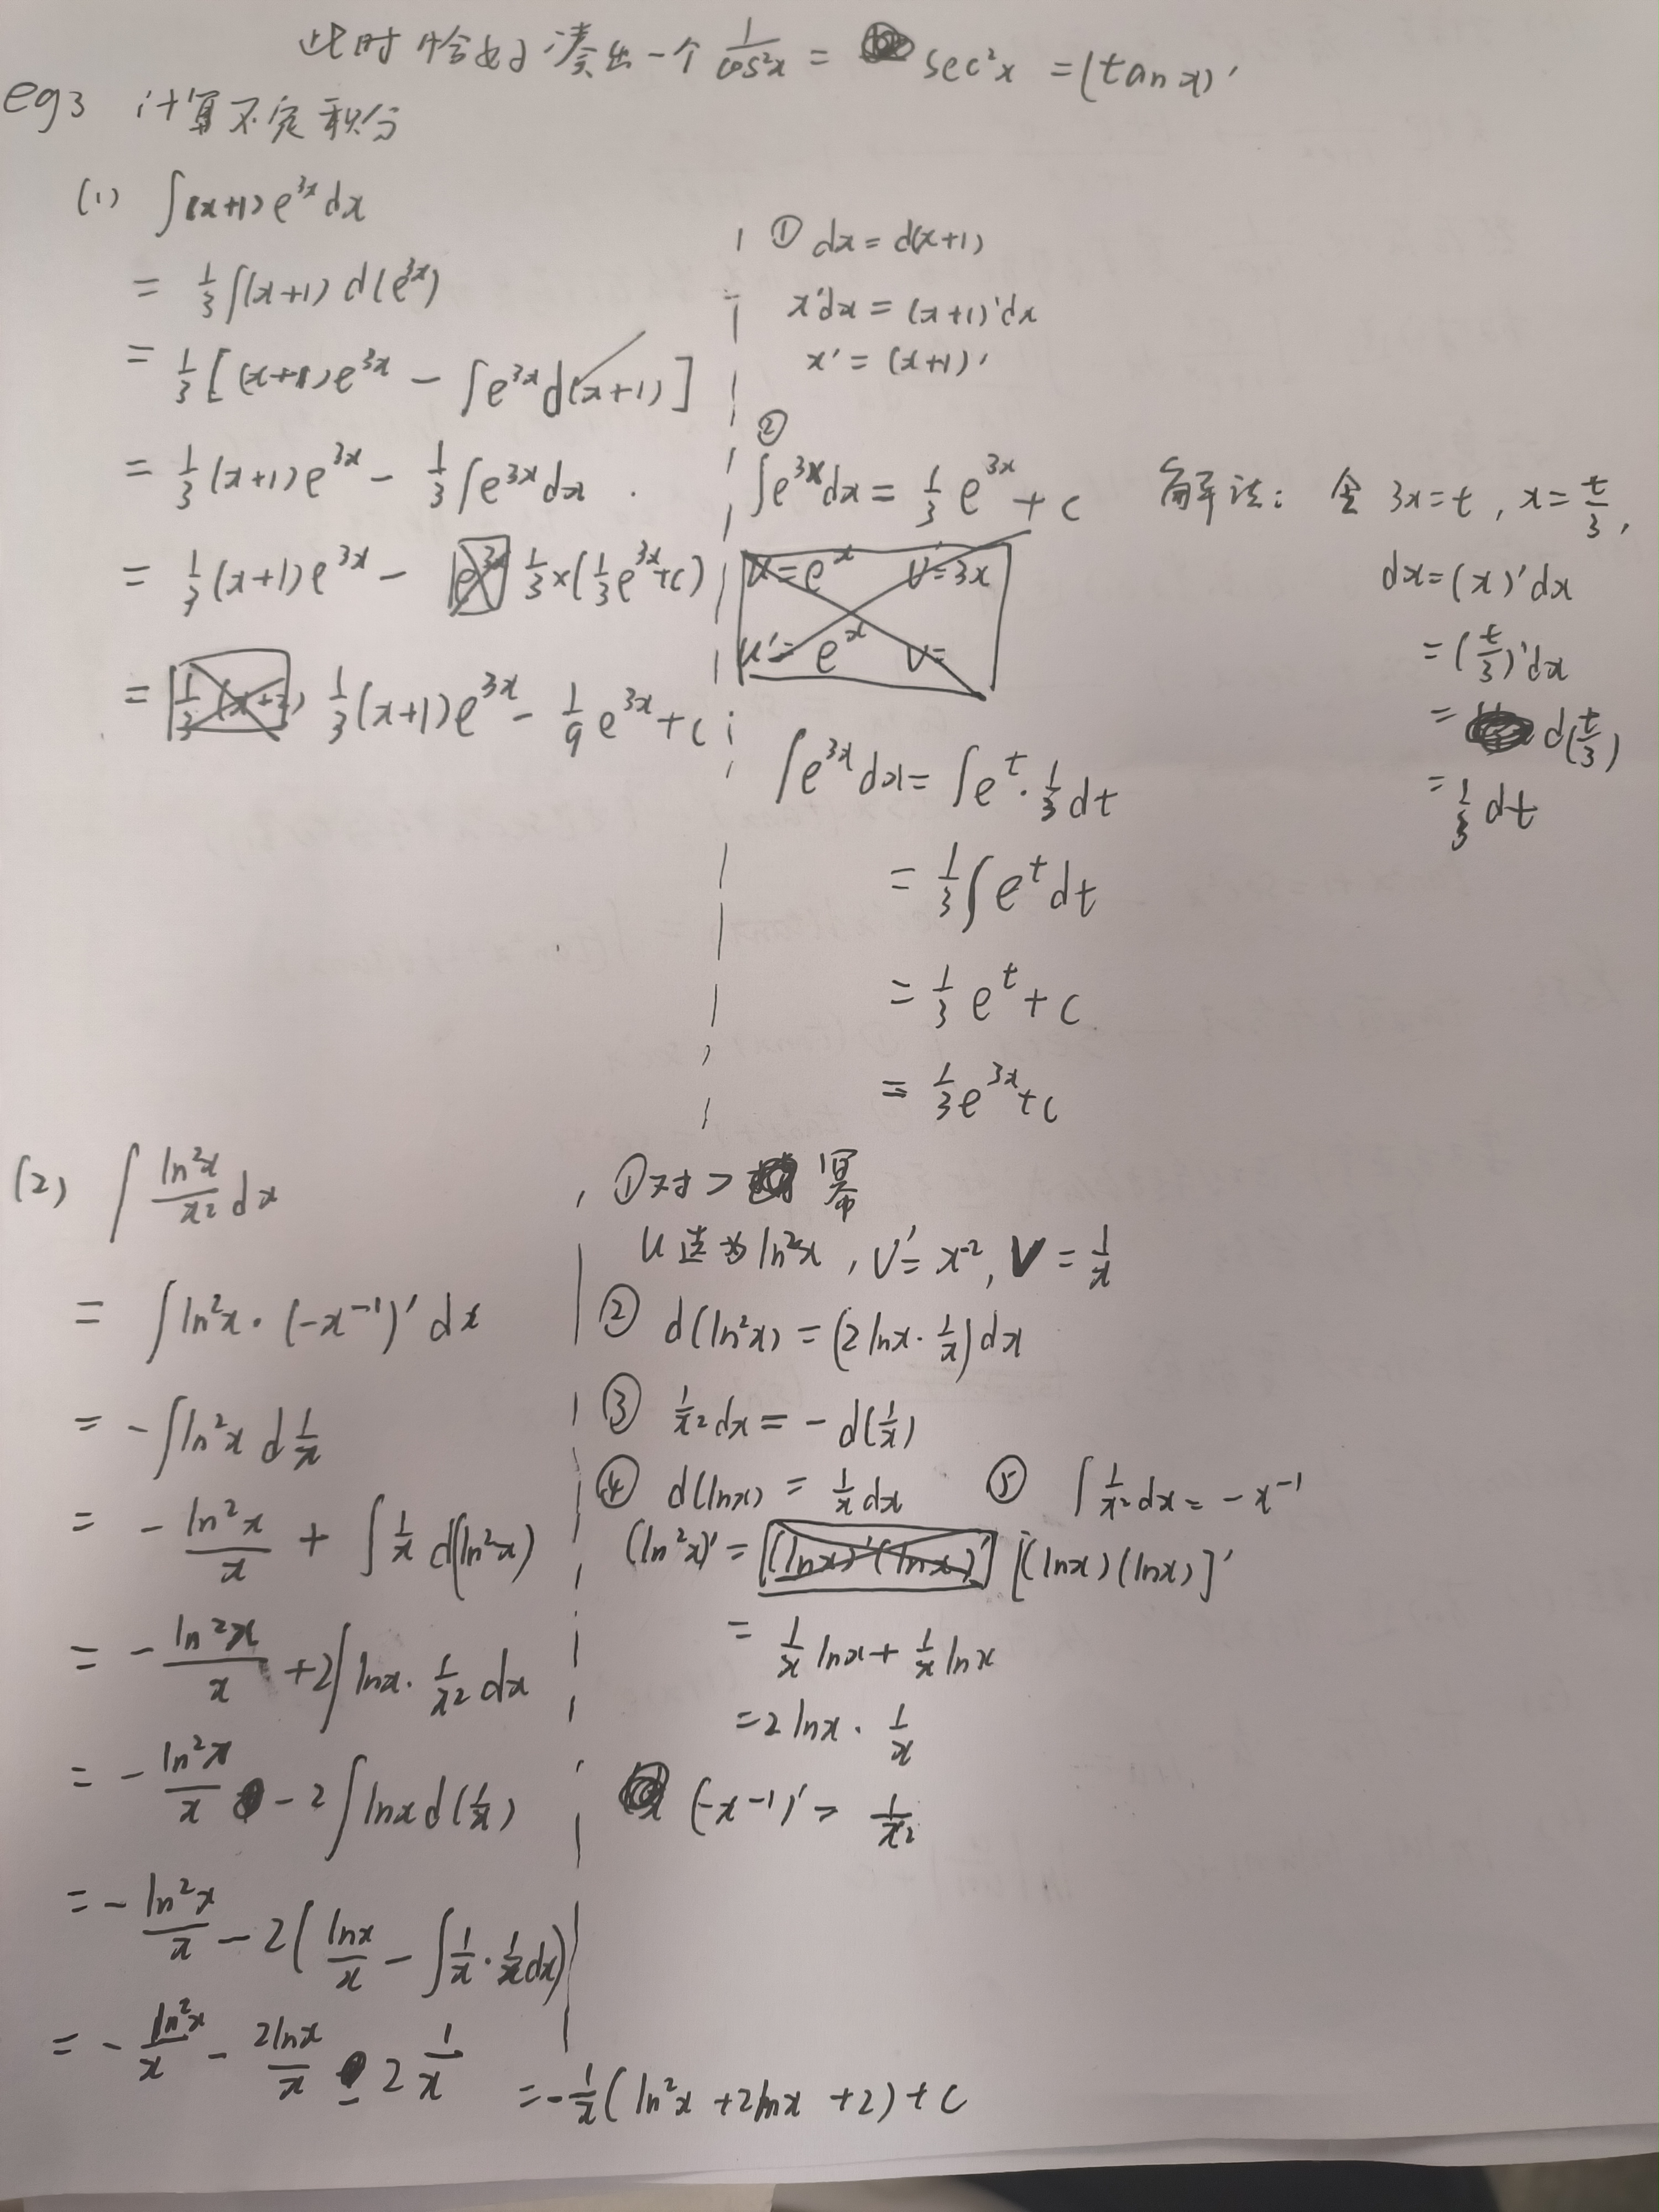 此时恰好凑出一个 1/cos²x = sec²x = (tan x)'
eg3 计算不定积分
(1) ∫(x+1)e^{3x}dx
= 1/3 ∫(x+1) d(e^{3x})
= 1/3 [(x+1)e^{3x} - ∫e^{3x}d(x+1)]
= 1/3 (x+1)e^{3x} - 1/3 ∫e^{3x}dx
= 1/3 (x+1)e^{3x} - 1/3×(1/3 e^{3x}+c)
= 1/3 (x+1)e^{3x} - 1/9 e^{3x}+c
① dx = d(x+1)
x'dx = (x+1)'dx
x' = (x+1)'
②
∫e^{3x}dx = 1/3 e^{3x} + c
u=e^x v'=3x
u'=e^x v=
解法: 令 3x=t, x=t/3,
dx=(x)'dx
=(t/3)'dx
= d(t/3)
= 1/3 dt
∫e^{3x}dx = ∫e^t · 1/3 dt
= 1/3 ∫e^t dt
= 1/3 e^t + c
= 1/3 e^{3x}+c
(2) ∫ ln²x/x² dx
= ∫ln²x · (-x^{-1})' dx
= -∫ln²x d 1/x
= - ln²x/x + ∫ 1/x d(ln²x)
= - ln²x/x +2∫lnx · 1/x² dx
= - ln²x/x - 2∫lnx d(1/x)
= - ln²x/x - 2( lnx/x - ∫ 1/x · 1/x dx)
= - ln²x/x - 2lnx/x - 2 1/x = - 1/x (ln²x +2lnx +2) + c
① 对 > 幂
u选为 ln²x, v'= x^{-2}, v = 1/x
② d(ln²x) = (2lnx · 1/x)dx
③ 1/x² dx = - d(1/x)
④ d(lnx) = 1/x dx ⑤ ∫ 1/x² dx = -x^{-1}
(ln²x)' = [(lnx)'(lnx)'] [(lnx)(lnx)]'
= 1/x lnx + 1/x lnx
= 2lnx · 1/x
(-x^{-1})' = 1/x²